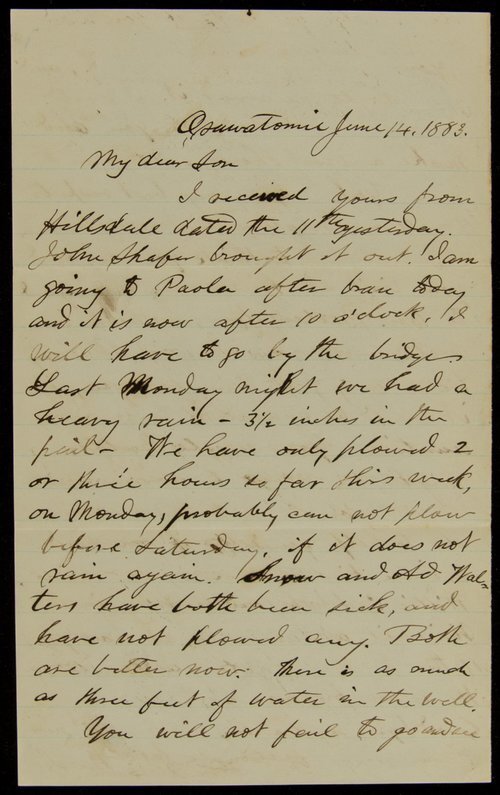 Osawatomie June 14, 1883.
My dear Son
I received yours from
Hillsdale dated the 11th yesterday.
John Shafer brought it out. I am
going to Paola after bran today
and it is now after 10 o'clock. I
will have to go by the bridge.
Last Monday night we had a
heavy rain - 3½ inches in the
pail - We have only plowed 2
or three hours so far this week,
on Monday, probably can not plow
before Saturday, if it does not
rain again. Snow and Ad Wal-
ters have both been sick, and
have not plowed any. Both
are better now. There is as much
as three feet of water in the well.
You will not fail to go and see